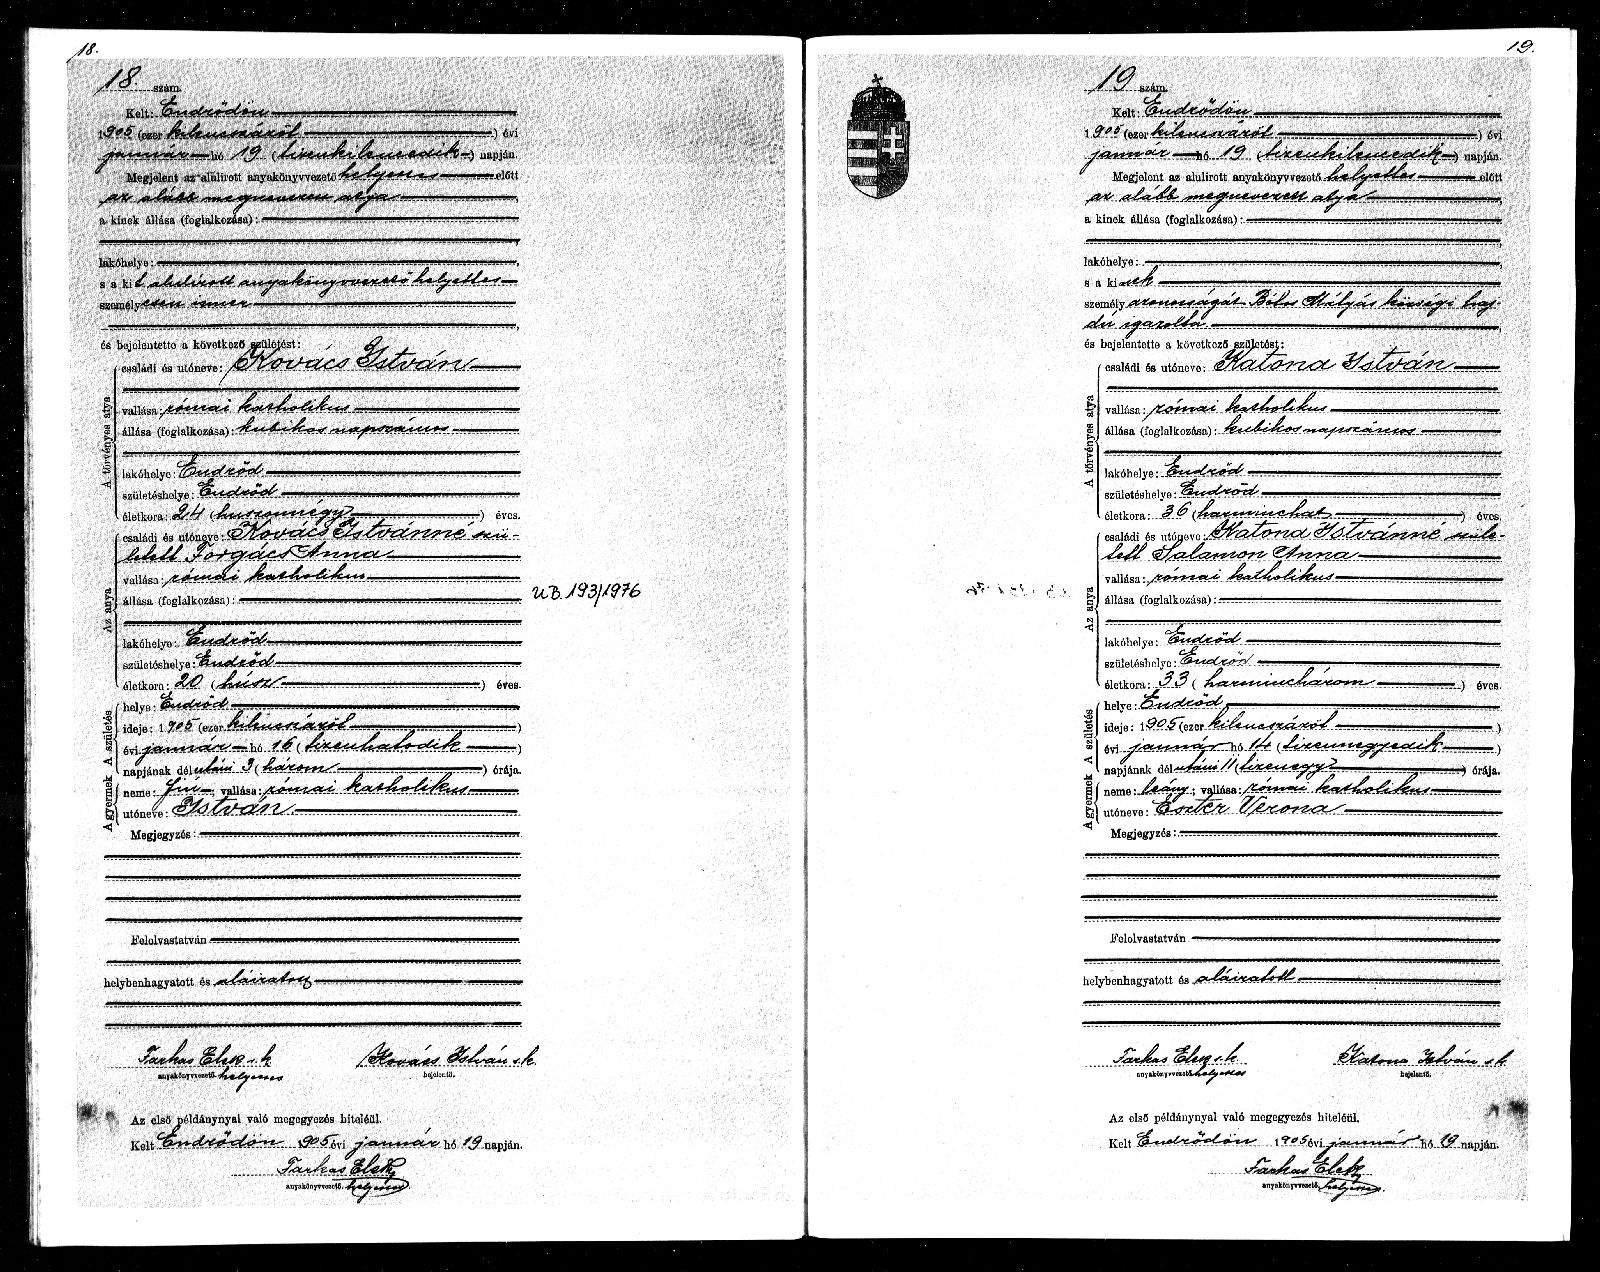 18.
18. szám.
Kelt: Endrődön
1905 (ezer kilencszázöt) évi
január hó 19 (tizenkilencedik) napján.
Megjelent az alulirott anyakönyvvezető helyettes előtt
az alább megnevezett atya,
a kinek állása (foglalkozása):
lakóhelye:
s a kit alulirott anyakönyvvezető helyettes
személyesen ismer
és bejelentette a következő születést:
A törvényes atya
családi és utóneve: Kovács István
vallása: római katholikus
állása (foglalkozása): kubikos napszámos
lakóhelye: Endrőd
születéshelye: Endrőd
életkora: 24 (huszonnégy) éves.
Az anya
családi és utóneve: Kovács Istvánné szü-
letett Forgács Anna
vallása: római katholikus
állása (foglalkozása):
lakóhelye: Endrőd
születéshelye: Endrőd
életkora: 20 (húsz) éves.
A születés
helye: Endrőd
ideje: 1905 (ezer kilencszázöt
évi január hó 16 (tizenhatodik)
napjának délutáni 3 (három) órája.
A gyermek
neme: fiú; vallása: római katholikus
utóneve: István
Megjegyzés:
Felolvastatván
helybenhagyatott és aláiratott
Farkas Elek s.k. Kovács István s.k.
anyakönyvvezető helyettes bejelentő.
Az első példánynyal való megegyezés hiteléül.
Kelt Endrődön 1905 évi január hó 19 napján.
Farkas Elek
anyakönyvvezető. helyettes.
UB. 193/1976
19.
19 szám.
Kelt: Endrődön
1905 (ezer kilencszázöt) évi
január hó 19 (tizenkilencedik) napján.
Megjelent az alulirott anyakönyvvezető helyettes előtt
az alább megnevezett atya,
a kinek állása (foglalkozása):
lakóhelye:
s a kinek
személyazonosságát Mátyás községi haj-
dú igazolta
és bejelentette a következő születést:
A törvényes atya
családi és utóneve: Katona István
vallása: római katholikus
állása (foglalkozása): kubikos napszámos
lakóhelye: Endrőd
születéshelye: Endrőd
életkora: 36 (harminchat) éves.
Az anya
családi és utóneve: Katona Istvánné szüle-
tett Salamon Anna
vallása: római katholikus
állása (foglalkozása):
lakóhelye: Endrőd
születéshelye: Endrőd
életkora: 33 (harminchárom) éves.
A születés
helye: Endrőd
ideje: 1905 (ezer kilencszázöt
évi január hó 14 (tizennegyedik)
napjának délutáni 11 (tizenegy) órája.
A gyermek
neme: leány; vallása: római katholikus
utóneve: Eszter Verona
Megjegyzés:
Felolvastatván
helybenhagyatott és aláiratott
Farkas Elek s.k. Katona István s.k.
anyakönyvvezető helyettes bejelentő.
Az első példánynyal való megegyezés hiteléül.
Kelt Endrődön 1905 évi január hó 19 napján.
Farkas Elek
anyakönyvvezető. helyettes.